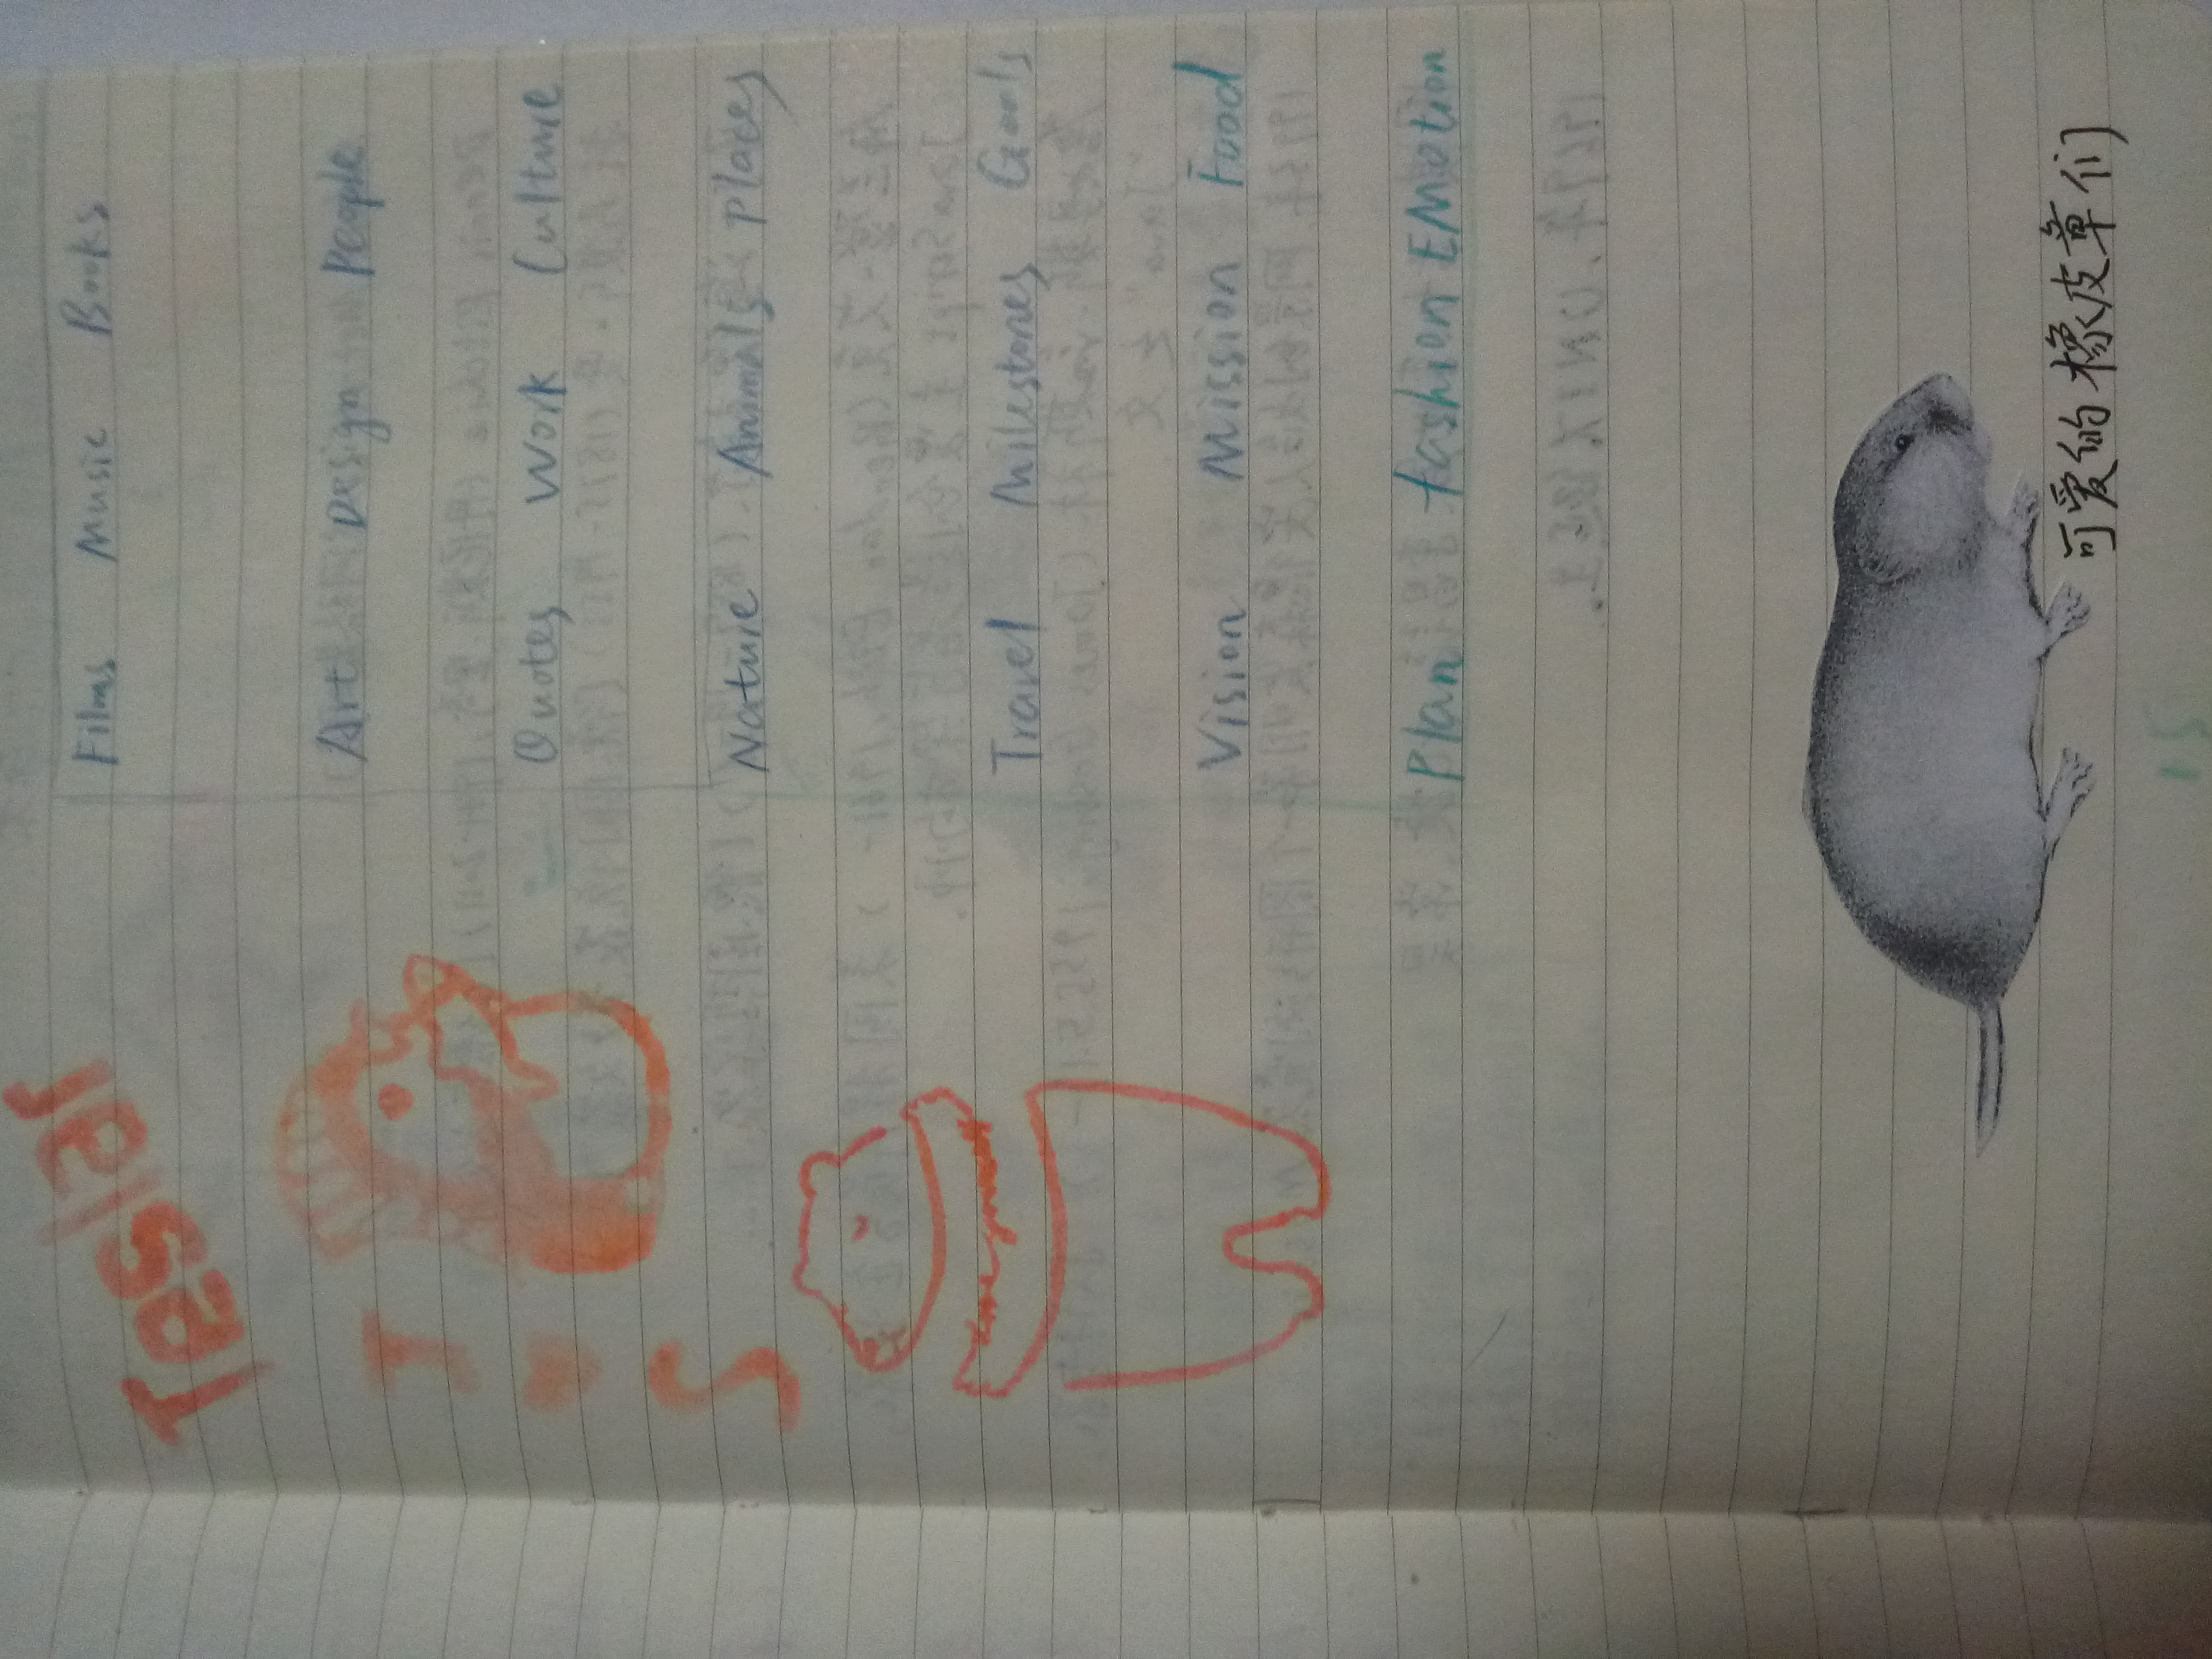 Films Music Books
Art Design People
Quotes Work Culture
Nature Animals places
Travel Milestones Goals
Vision Mission Food
Plan fashion EMotion
可爱的橡皮章们
15